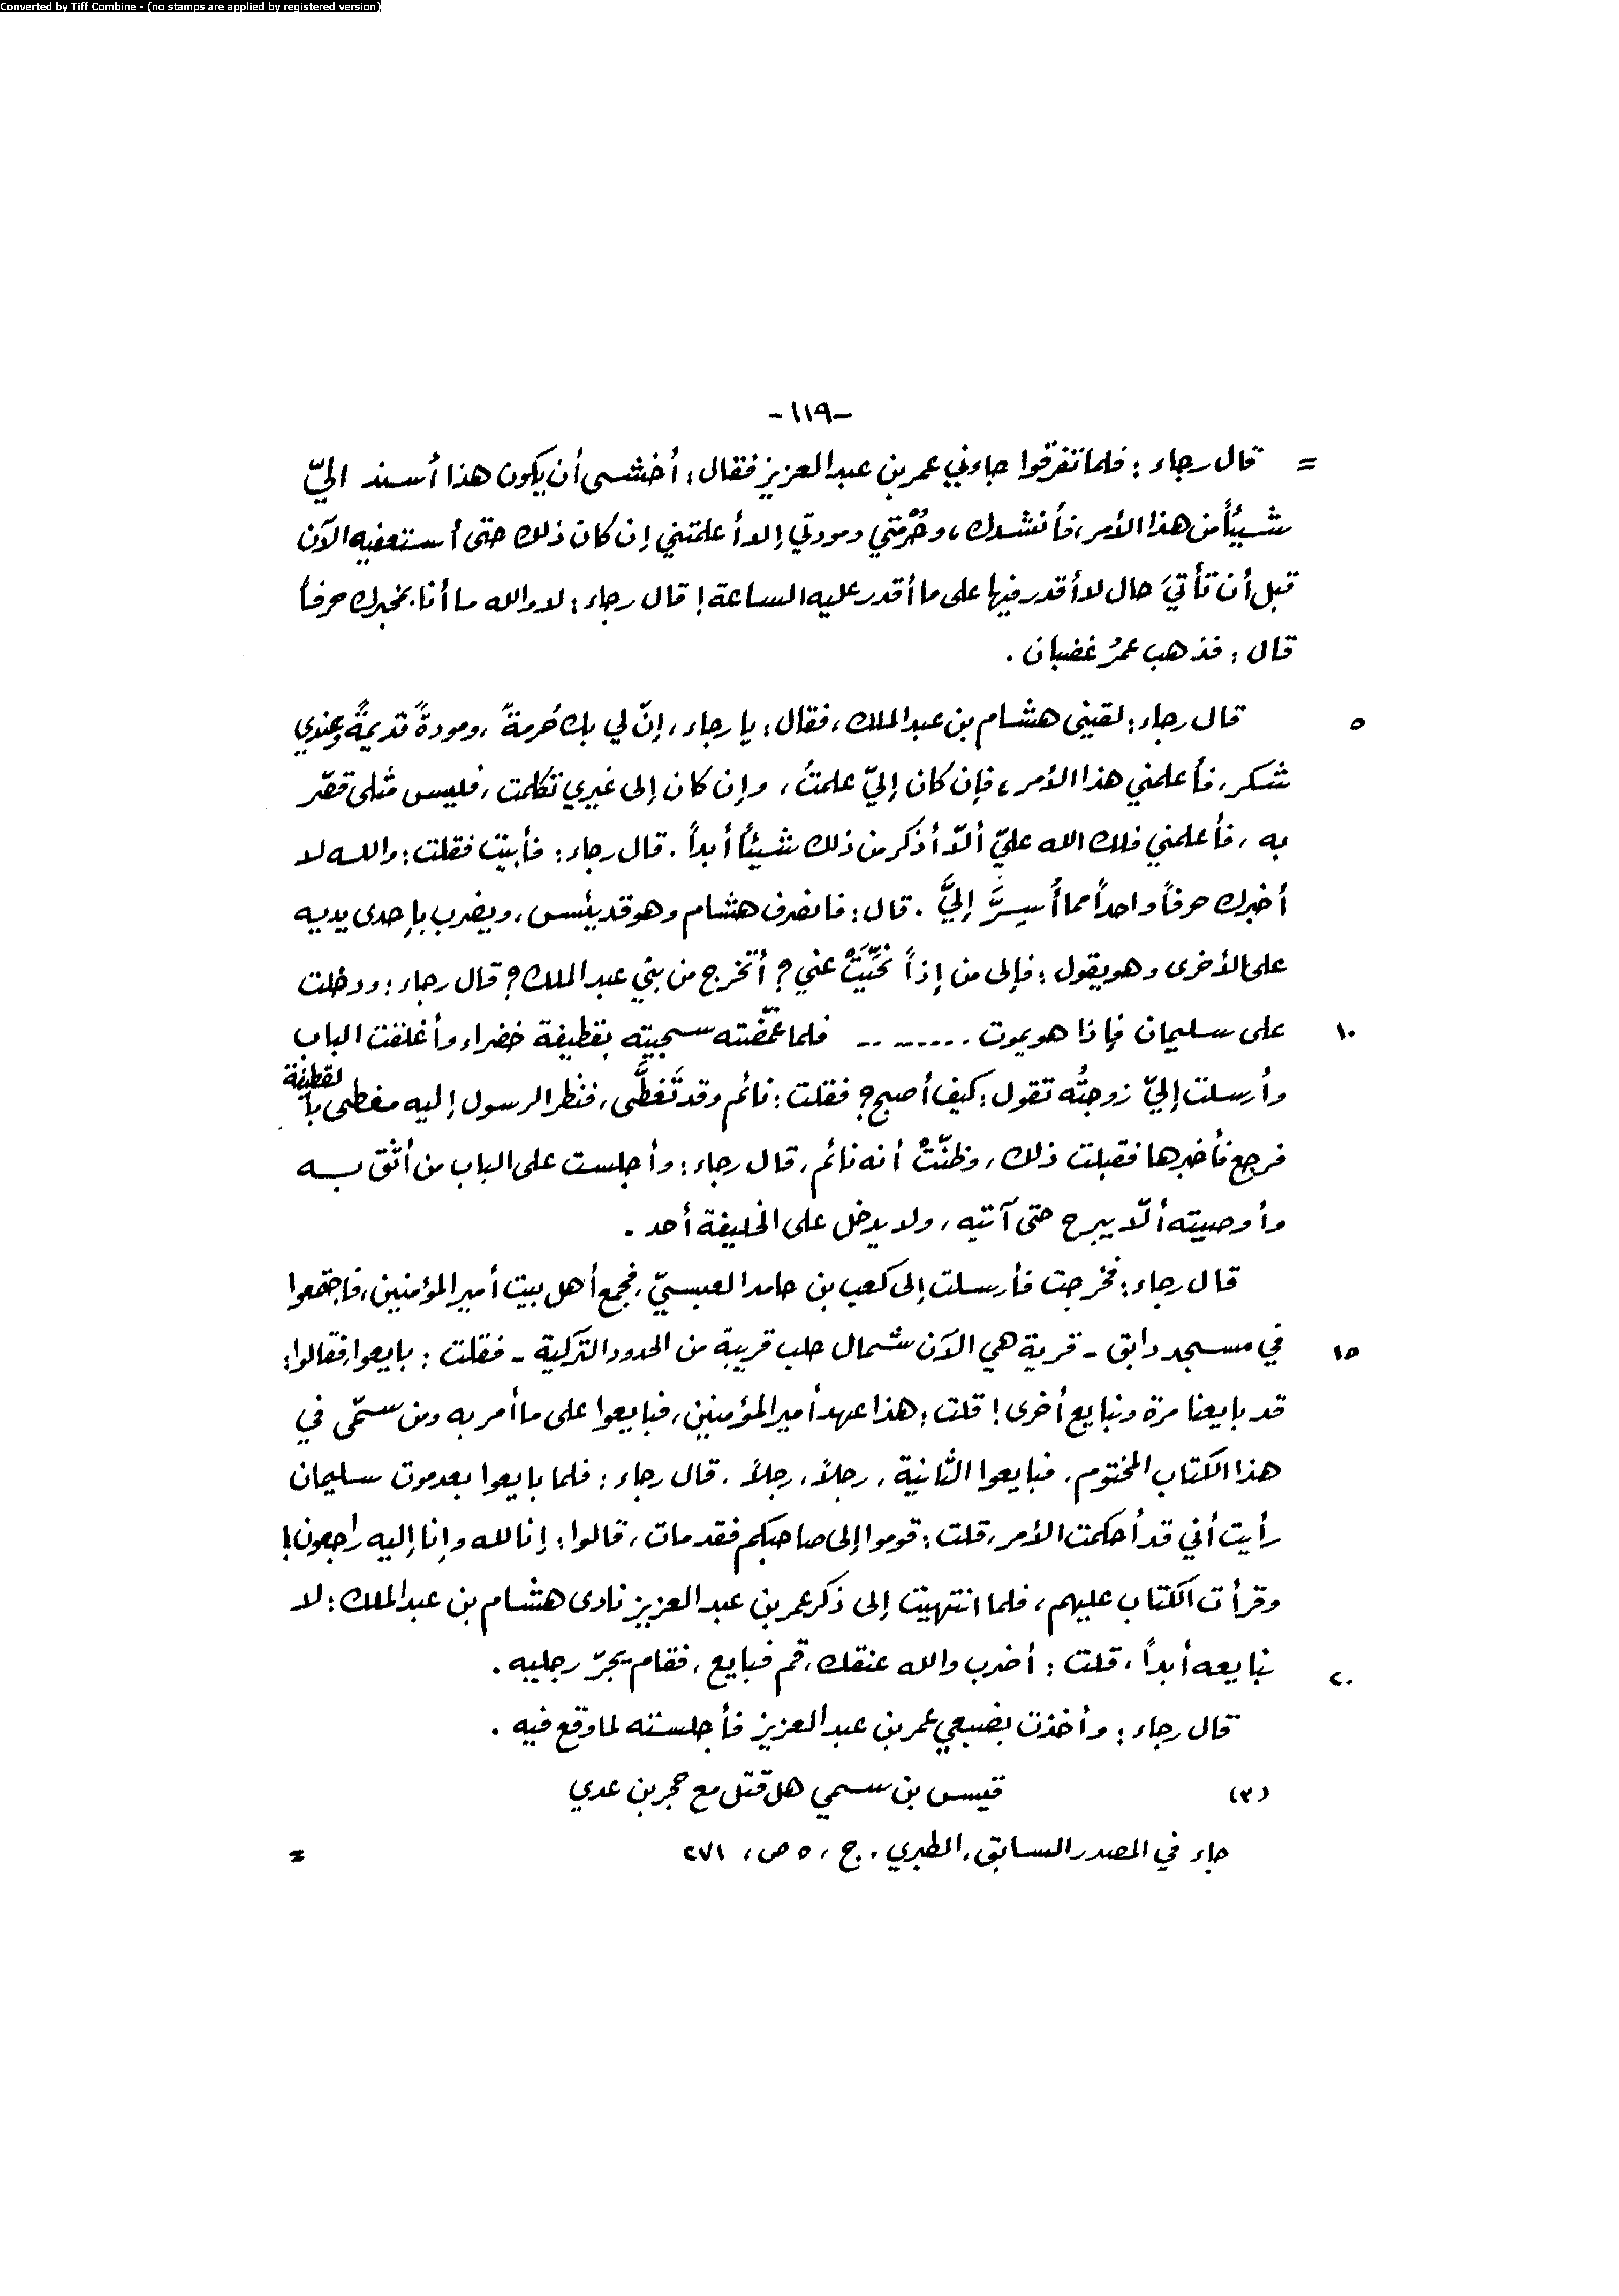 Converted by Tiff Combine - (no stamps are applied by registered version)
-١١٩-
= قال رجاء : فلما تفرقوا جاءني عمر بن عبد العزيز فقال : أخشى أن يكون هذا أسند اليّ
شيئاً من هذا الأمر ، فأنشدك ، وحُرْمَتي ومودتي إلا أعلمتني إن كان ذلك حتى أستعفيه الآن
قبل أن تأتيَ حال لا أقدر فيها على ما أقدر عليه الساعة ! قال رجاء : لا والله ما أنا بمخبرك حرفاً
قال : فذهب عمرُ غضبان .
٥ قال رجاء : لقيني هشام بن عبد الملك ، فقال : يا رجاء ، إنّ لي بك حُرمةً ، ومودةً قديمةً وعندي
شكر ، فأعلمني هذا الأمر ، فإن كان إليّ علمتُ ، وإن كان إلى غيري تكلمت ، فليس مثلي قصّر
به ، فأعلمني فلك الله عليّ ألّا أذكر من ذلك شيئاً أبداً . قال رجاء : فأبيت فقلت : والله لا
أخبرك حرفاً واحداً مما أُسِرَّ إليَّ . قال : فانصرف هشام وهو قد يئس ، ويضرب بإحدى يديه
على الأخرى وهو يقول : فإلى من إذاً نُحِّيَتْ عني ؟ أتخرج من بني عبد الملك ؟ قال رجاء : ودخلت
١٠ على سليمان فإذا هو يموت ......... فلما غمّضته سجيته بقطيفة خضراء وأغلقت الباب
وأرسلت إليّ زوجتُه تقول : كيف أصبح ؟ فقلت : نائم وقد تَغطَّى ، فنظر الرسول إليه مغطى بالقطيفة
فرجع فأخبرها فقبلت ذلك ، وظنّتْ أنه نائم ، قال رجاء : وأجلست على الباب من أثق به
وأوصيته ألّا يبرح حتى آتيه ، ولا يدخل على الخليفة أحد .
قال رجاء : فخرجت فأرسلت إلى كعب بن حامد العبسيّ ، فجمع أهل بيت أمير المؤمنين ، فاجتمعوا
١٥ في مسجد دابق - قرية هي الآن شمال حلب قريبة من الحدود التركية - فقلت : بايعوا ، فقالوا :
قد بايعنا مرة ونبايع أخرى ! قلت : هذا عهد أمير المؤمنين ، فبايعوا على ما أمر به ومن سمّى في
هذا الكتاب المختوم ، فبايعوا الثانية ، رجلاً ، رجلاً . قال رجاء : فلما بايعوا بعد موت سليمان
رأيت أني قد أحكمت الأمر ، قلت : قوموا إلى صاحبكم فقد مات ، قالوا : إنا لله وإنا إليه راجعون !
وقرأت الكتاب عليهم ، فلما انتهيت إلى ذكر عمر بن عبد العزيز نادى هشام بن عبد الملك : لا
٢٠ نبايعه أبداً ، قلت : أضرب والله عنقك ، قم فبايع ، فقام يجرّ رجليه .
قال رجاء : وأخذت بضبعي عمر بن عبد العزيز فأجلسته لما وقع فيه .
(٣) قيس بن سمي هل قتل مع حجر بن عدي
جاء في المصدر السابق ، الطبري . ج ، ٥ ص ، ٢٧١ =